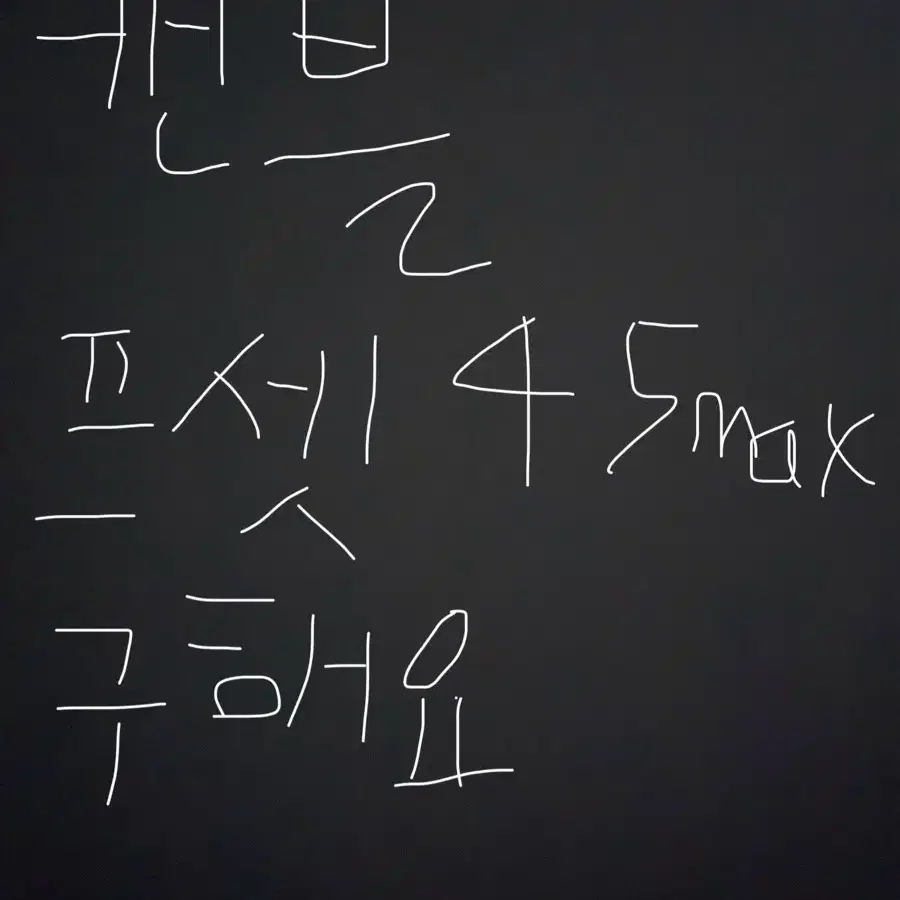 프셋 45max
구해요